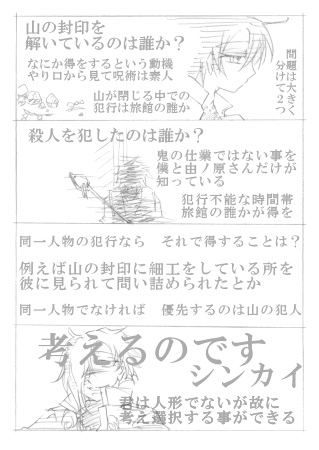 山の封印を
解いているのは誰か？
問題は大きく
分けて２つ
なにか得をするという動機
やり口から見て呪術は素人
山が閉じる中での
犯行は旅館の誰か
殺人を犯したのは誰か？
鬼の仕業ではない事を
僕と由ノ原さんだけが
知っている
犯行不能な時間帯
旅館の誰かが得を
同一人物の犯行なら　それで得することは？
例えば山の封印に細工をしている所を
彼に見られて問い詰められたとか
同一人物でなければ　優先するのは山の犯人
考えるのです
シンカイ
君は人形でないが故に
考え選択する事ができる